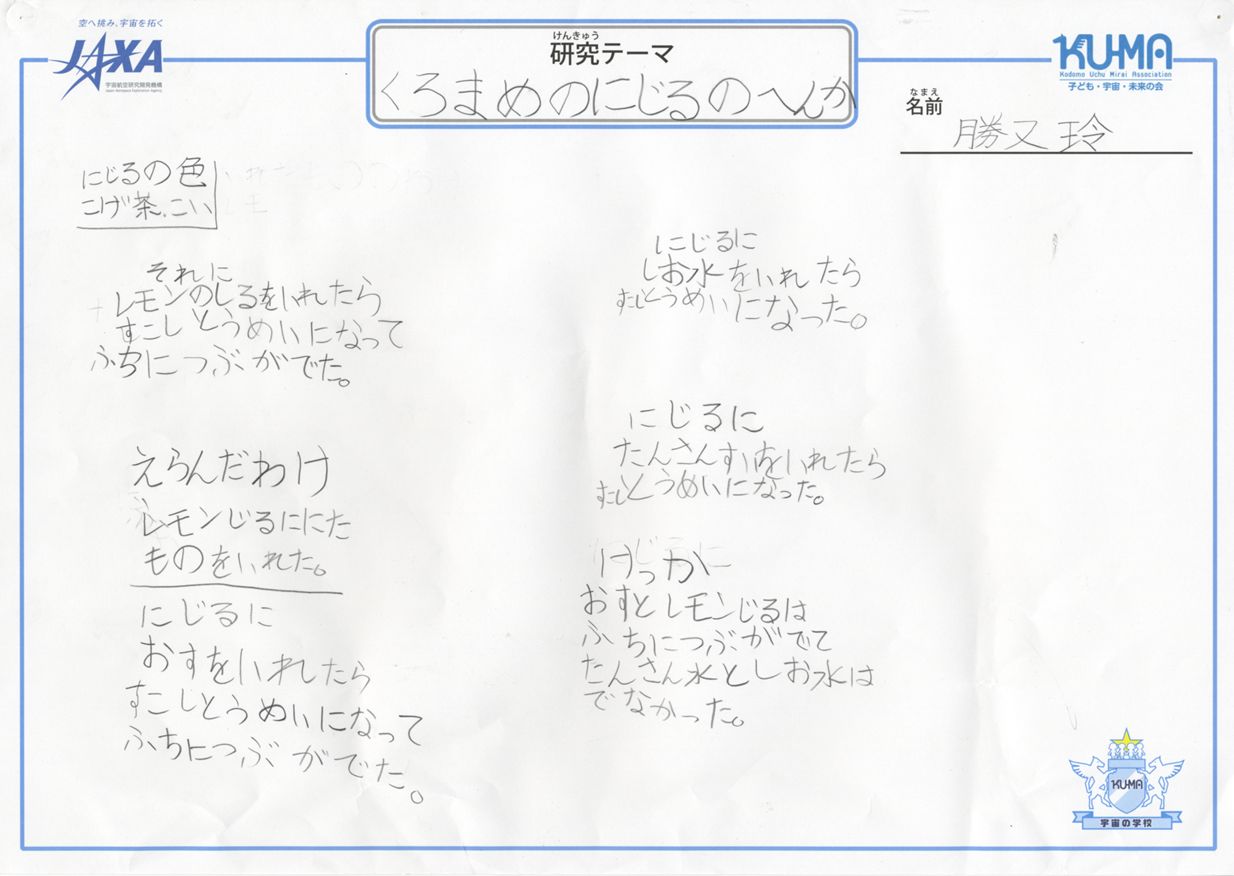 空へ挑み、宇宙を拓く
JAXA
宇宙航空研究開発機構
Japan Aerospace Exploration Agency
けんきゅう
研究テーマ
くろまめのにじるのへんか
KU-MA
Kodomo Uchu Mirai Association
子ども・宇宙・未来の会
なまえ
名前
勝又玲
にじるの色
こげ茶.こい
それに
レモンのしるをいれたら
すこしとうめいになって
ふちにつぶがでた。
えらんだわけ
レモンじるににた
ものをいれた。
にじるに
おすをいれたら
すこしとうめいになって
ふちにつぶがでた。
にじるに
しお水をいれたら
すこしとうめいになった。
にじるに
たんさんすいをいれたら
すこしとうめいになった。
けっか
おすとレモンじるは
ふちにつぶがでて
たんさん水としお水は
でなかった。
KU-MA
宇宙の学校